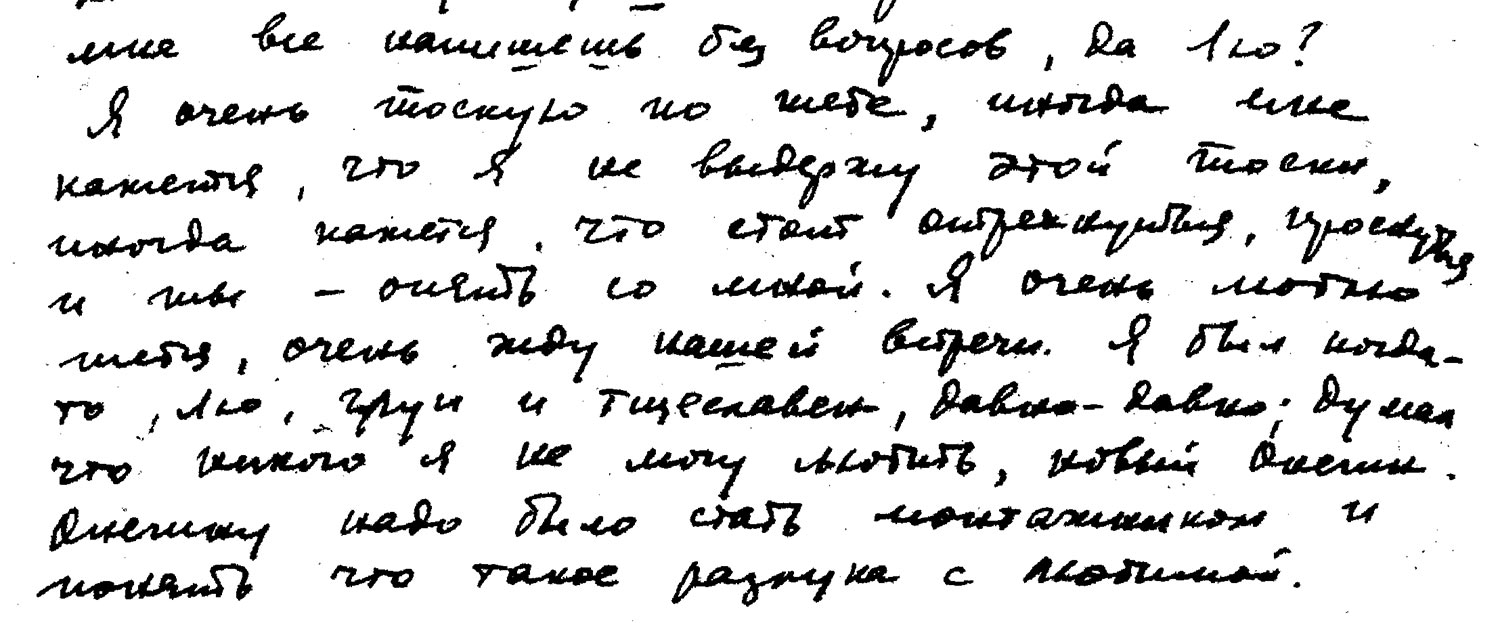 мне все напишешь без вопросов, да Лю?
Я очень тоскую по тебе, иногда мне
кажется, что я не выдержу этой тоски,
иногда кажется, что стоит встрепенуться, проснуться
и ты – опять со мной. Я очень люблю
тебя, очень жду нашей встречи. Я был когда-
то, Лю, груб и тщеславен, давно-давно; думал
что никого я не могу любить, новый Онегин.
Онегину надо было стать монтажником и
понять что такое разлука с любимой.